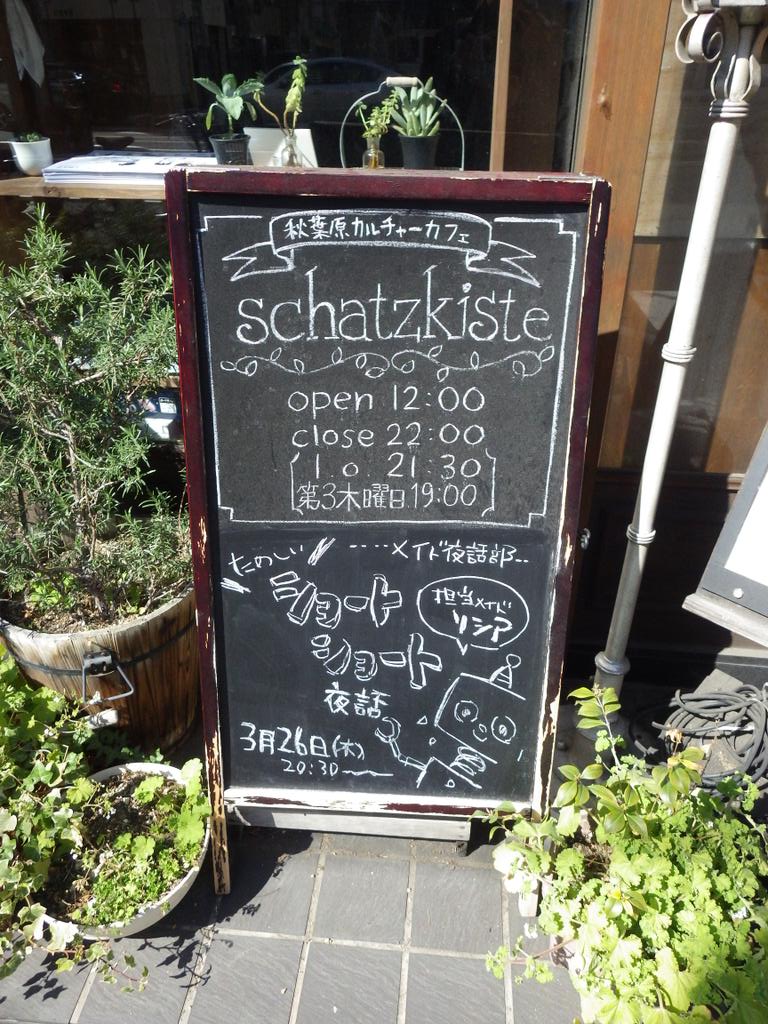 秋葉原カルチャーカフェ
schatzkiste
open 12:00
close 22:00
l.o. 21:30
第3木曜日 19:00
たのしい
‥‥メイド夜話部‥
ショート
ショート
夜話
担当メイド
リシア
3月26日(木)
20:30